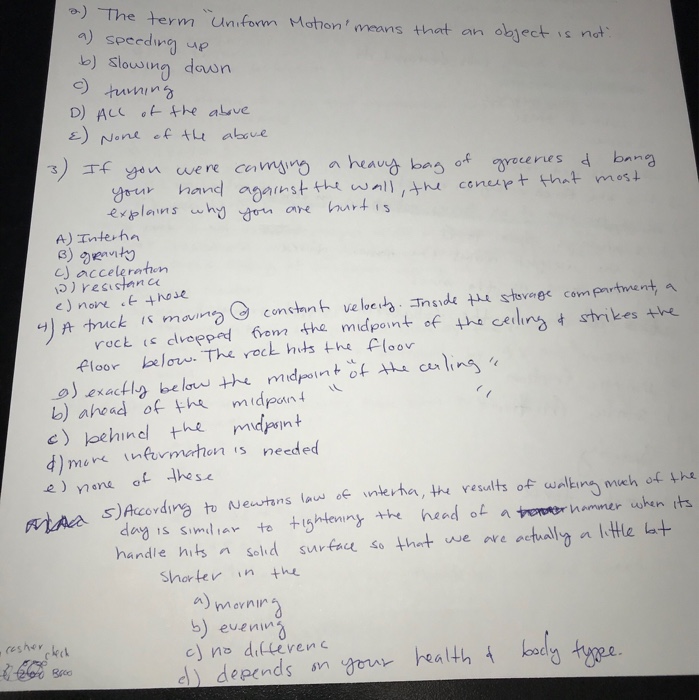 2) The term "Uniform Motion" means that an object is not:
a) speeding up
b) Slowing down
c) turning
D) ALL of the above
E) None of the above
3) If you were carrying a heavy bag of groceries & bang
your hand against the wall, the concept that most
explains why you are hurt is
A) Intertia
B) gravity
c) acceleration
D) resistance
e) none of those
4) A truck is moving @ constant velocity. Inside the storage compartment, a
rock is dropped from the midpoint of the ceiling & strikes the
floor below. The rock hits the floor
a) exactly below the midpoint of the ceiling
b) ahead of the midpoint " "
c) behind the midpoint
d) more information is needed
e) none of these
5) According to Newtons law of intertia, the results of walking much of the
day is similiar to tightening the head of a hammer when its
handle hits a solid surface so that we are actually a little bit
shorter in the
a) morning
b) evening
c) no differenc
d) depends on your health & body type.
check